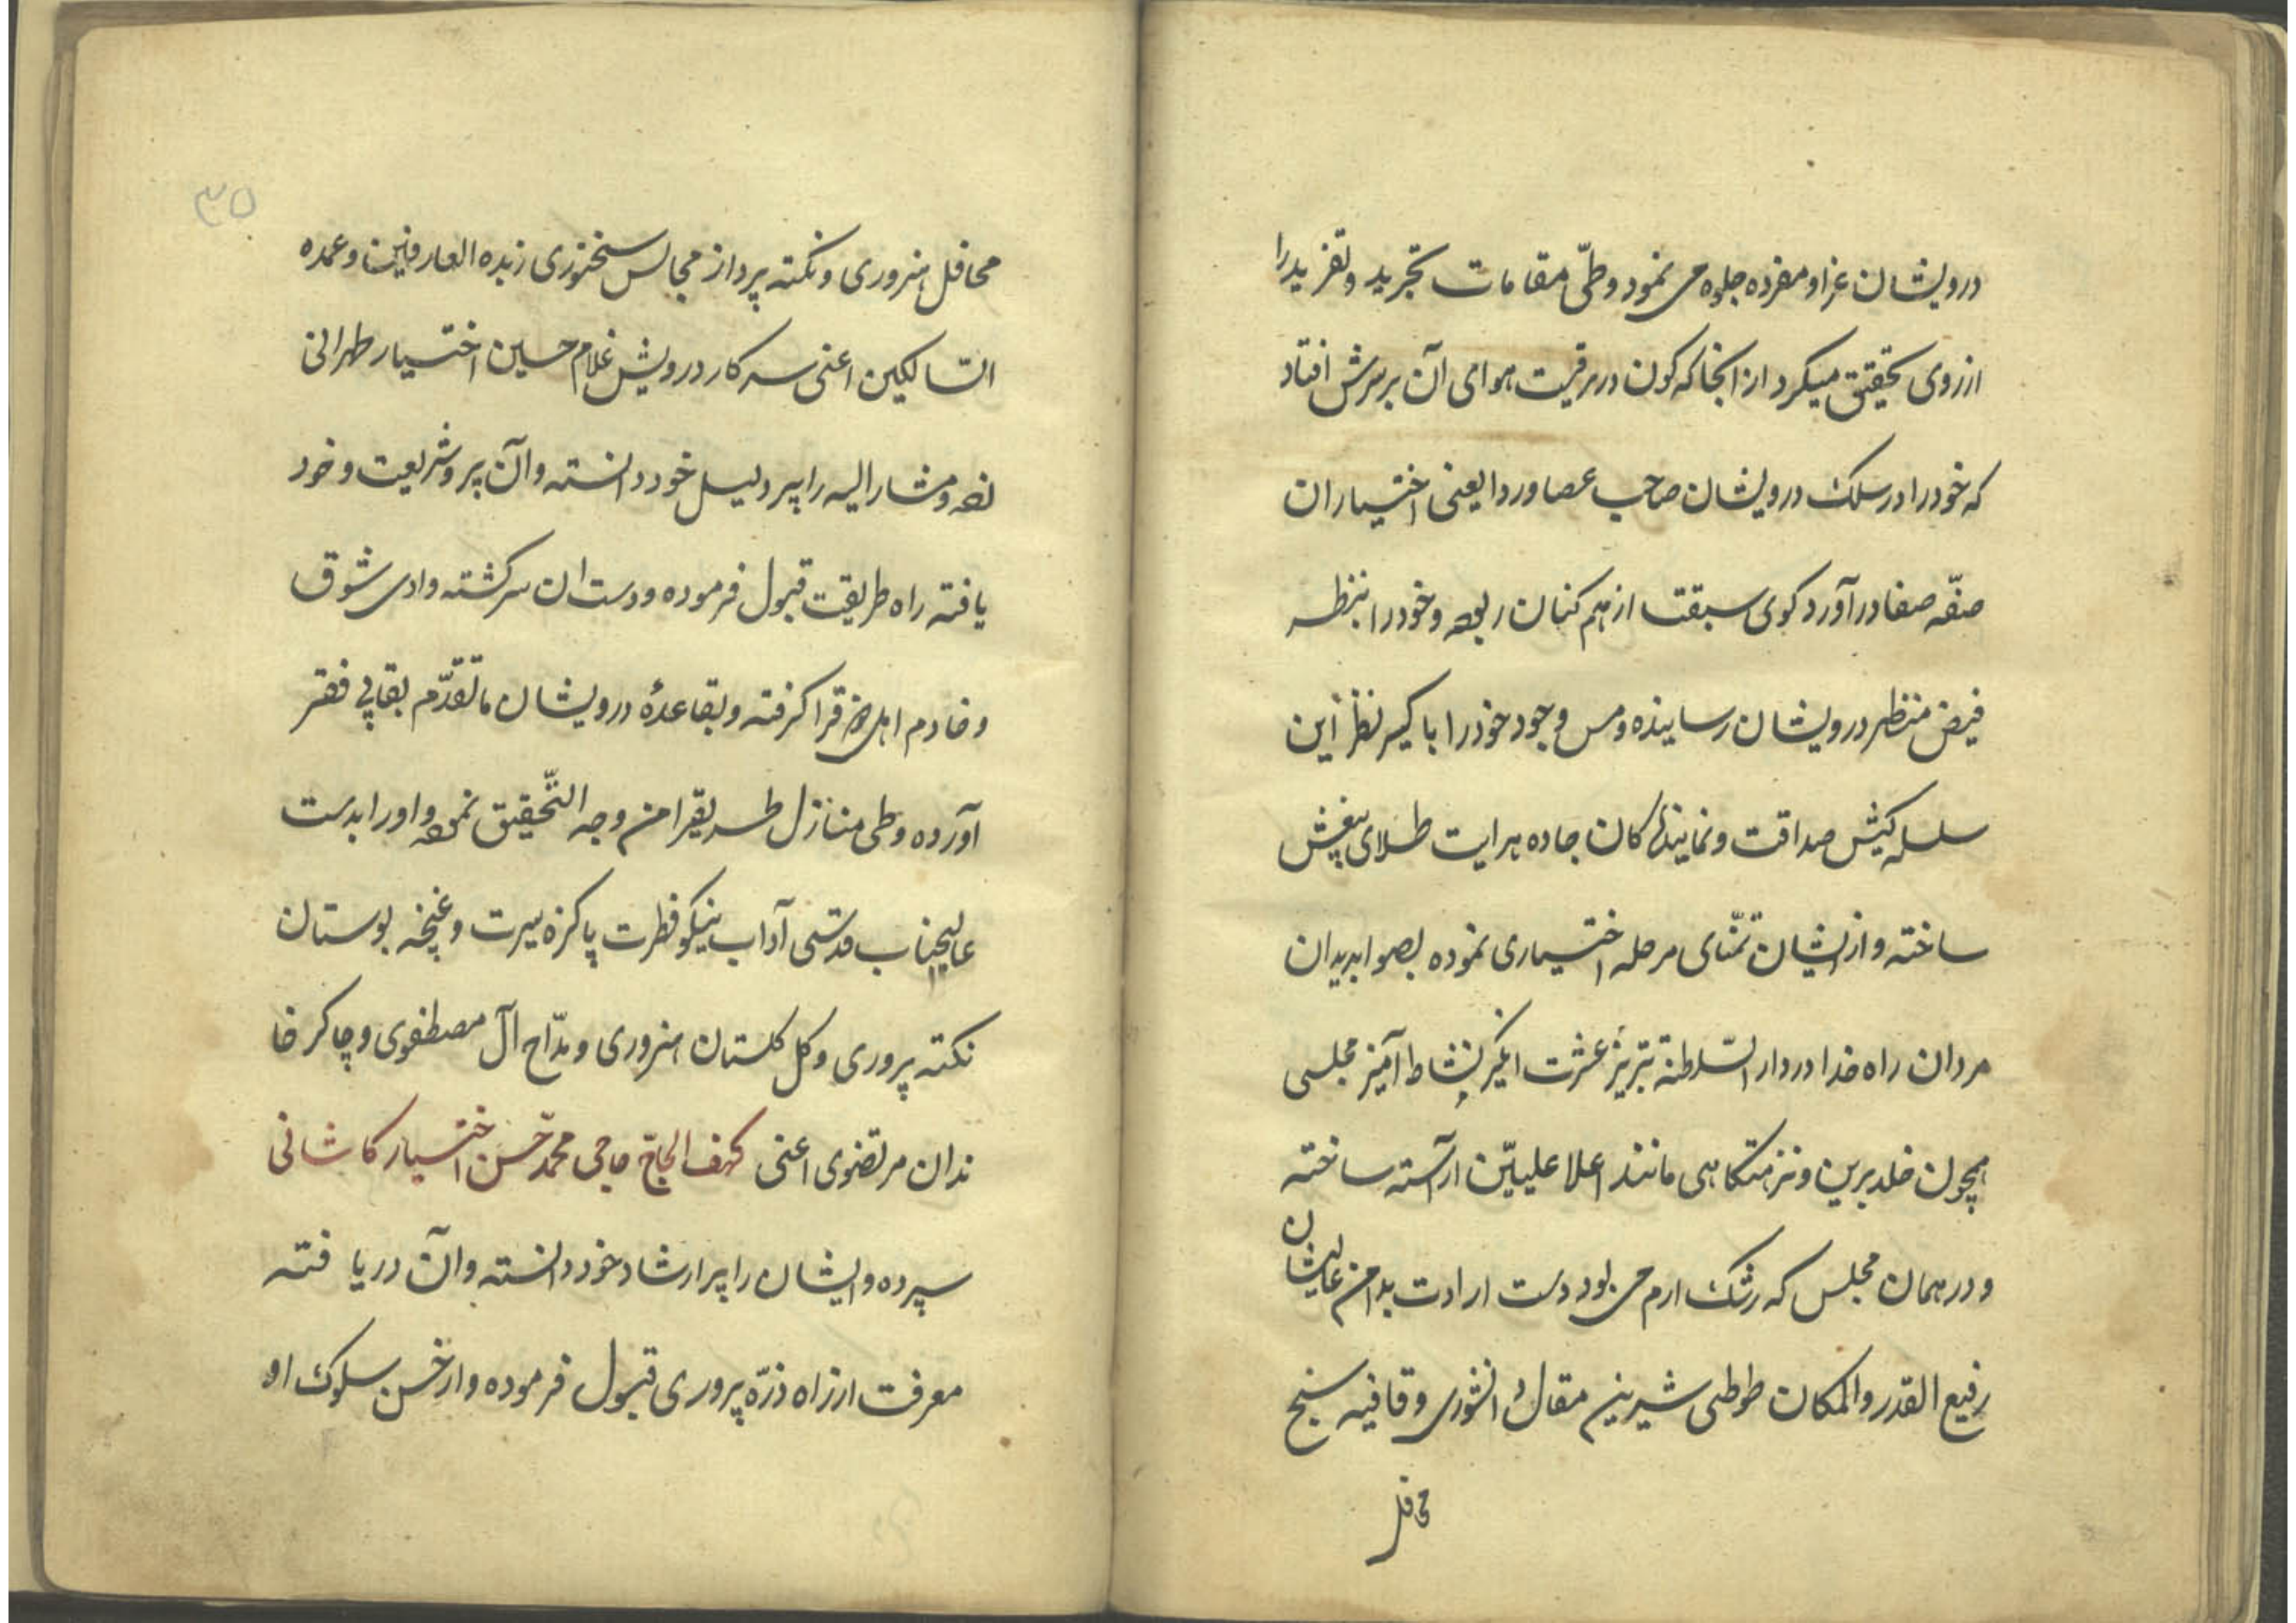 درویشان عزا و مفرده جلوه می نمود وطیّ مقامات تجرید و تفرید را
از روی تحقیق میکرد از انجا که کون در برقیت هوای آن بر سرش افتاد
که خود را در سلک درویشان صاحب عصا وردا یعنی اختیاران
صفّه صفا در آورد کوی سبقت از هم کنان ربوده و خود را بنظر
فیض منظر درویشان رسانیده و مس وجود خود را با کسیر نظر این
سلسله کیش صداقت و نمایندکان جاده هدایت طلای بیغش
ساخته و از ایشان تمنّای مرحله اختیاری نموده بصوابدید ان
مردان راه خدا در دار السّلطنة تبریز عشرت انکیز نشاط آمیز مجلسی
همچون خلد برین و نزهتکاهی مانند اعلا علییّن آراسته ساخته
و در همان مجلس که رشک ارم می بود دست ارادت بدامن عالیشان
رفیع القدر والمکان طوطی شیرین مقال و قافیه سنج
محافل
۳۵
محافل هنروری و نکته پرداز مجالس سخنوری زبده العارفین و عمده
السّالکین اعنی سرکار درویش غلام حسین اختیار طهرانی
زده و مشار الیه را پیر دلیل خود دانسته و آن پیرو شریعت و خود
یافته راه طریقت قبول فرموده و دست ان سرکشته وادی شوق
و خادم اهل فرا کرفته و بقاعدۀ درویشان ماتقدّم بقاپی فقر
آورده و طی منازل طریقرا من وجه التّحقیق نموده و او را بدست
عالیجناب قدسی آداب نیکو فطرت پاکزه سیرت و غنچه بوستان
نکته پروری و کل کلستان هنروری و مدّاح آل مصطفوی و چاکر خا
ندان مرتضوی اعنی کهف الحاج حاجی محمّد حسن اختیار کاشانی
سپرده و ایشان را پیر ارشاد خود دانسته و آن دریا فته
معرفت از راه ذرّه پروری قبول فرموده و از حسن سلوک او